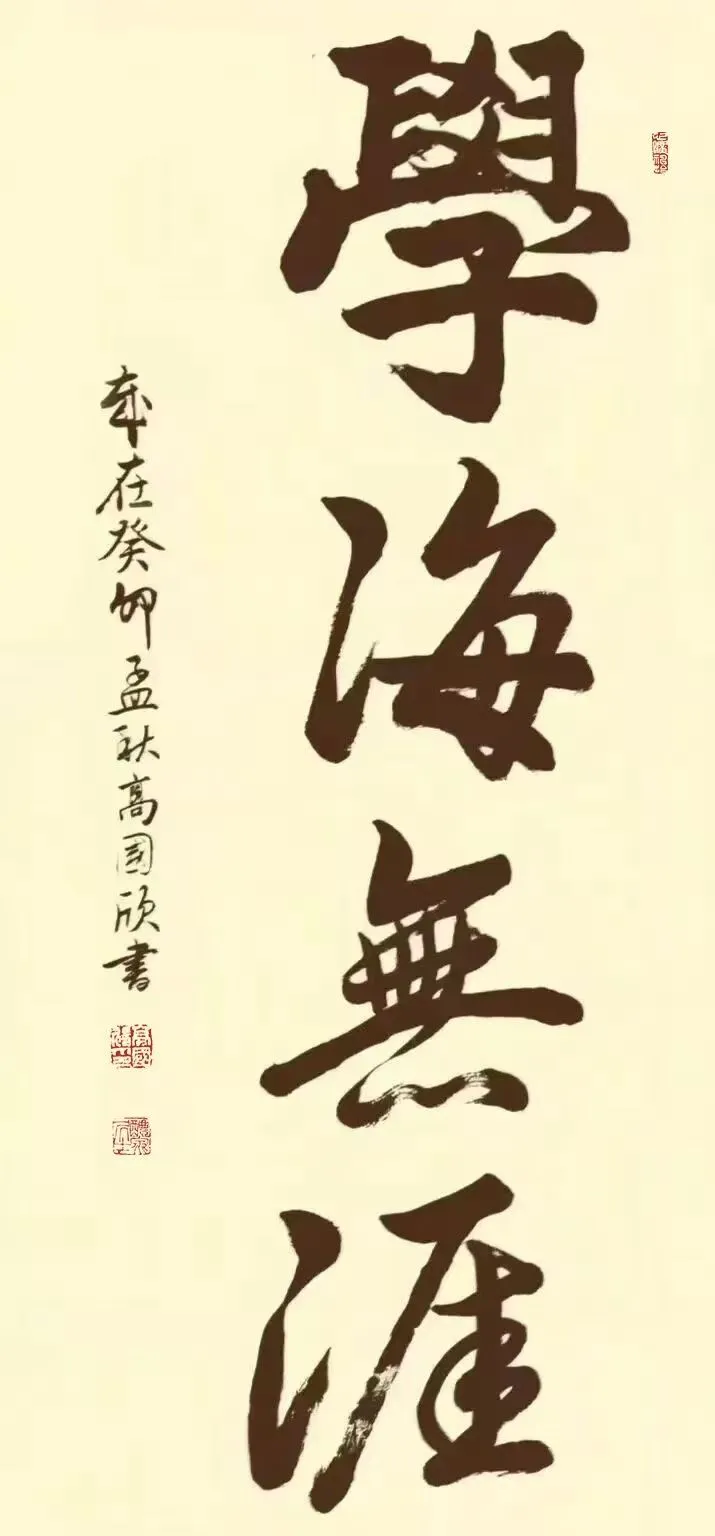 學海無涯
歲在癸卯孟秋高國欣書